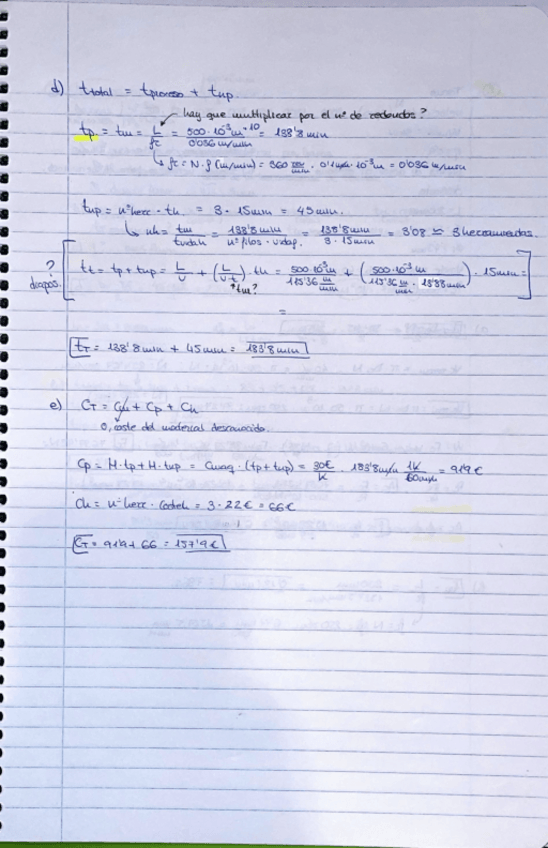 d) t total = t proceso + t up.
hay que multiplicar por el nº de redondos?
tp = tm = L/ft = 500·10⁻³m·10/0'036 m/min = 138'8 min
ft = N·f (m/min) = 360 rev/min · 0'1 · 10⁻³m = 0'036 m/min
tup = nº herr · th = 3 · 15 min = 45 min.
nh = tm/tvidah = 138'8 min/nº filos · vidaf = 138'8 min/3·15min = 3'08 ≈ 3 herramientas.
? diapos. [ tt = tp + tup = L/v + (L/v·t) · th = 500·10⁻³m/113'36 m/min + (500·10⁻³m/113'36 m/min · 138'8min) · 15 min = ]
tm?
=
tT = 138'8 min + 45 min = 183'8 min
e) CT = Cm + Cp + Ch
0, coste del material desconocido.
Cp = M·tp + M·tup = Cmaq · (tp + tup) = 30€/h · 183'8 min · 1h/60min = 91'9 €
Ch = nº herr · Costeh = 3 · 22€ = 66€
CT = 91'9 + 66 = 157'9€